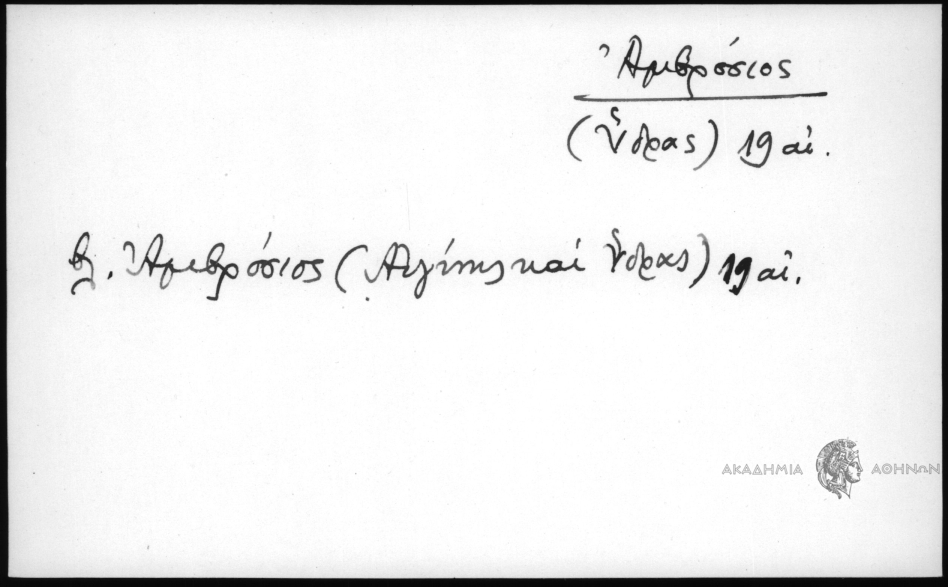 Ἀμβρόσιος
(Ὕδρας) 19 αἰ.
βλ. Ἀμβρόσιος (Αἰγίνης καί Ὕδρας) 19 αἰ.
ΑΚΑΔΗΜΙΑ ΑΘΗΝΩΝ